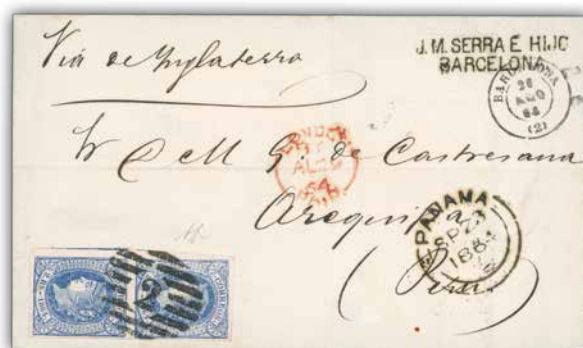 Via de Inglaterra
J. M. SERRA É HIJO
BARCELONA
BARCELONA
26
AGO
64
(2)
G. de Castresana
LONDON
64
PAID
Arequipa
PANAMA
SP 23
1864
Perú
2